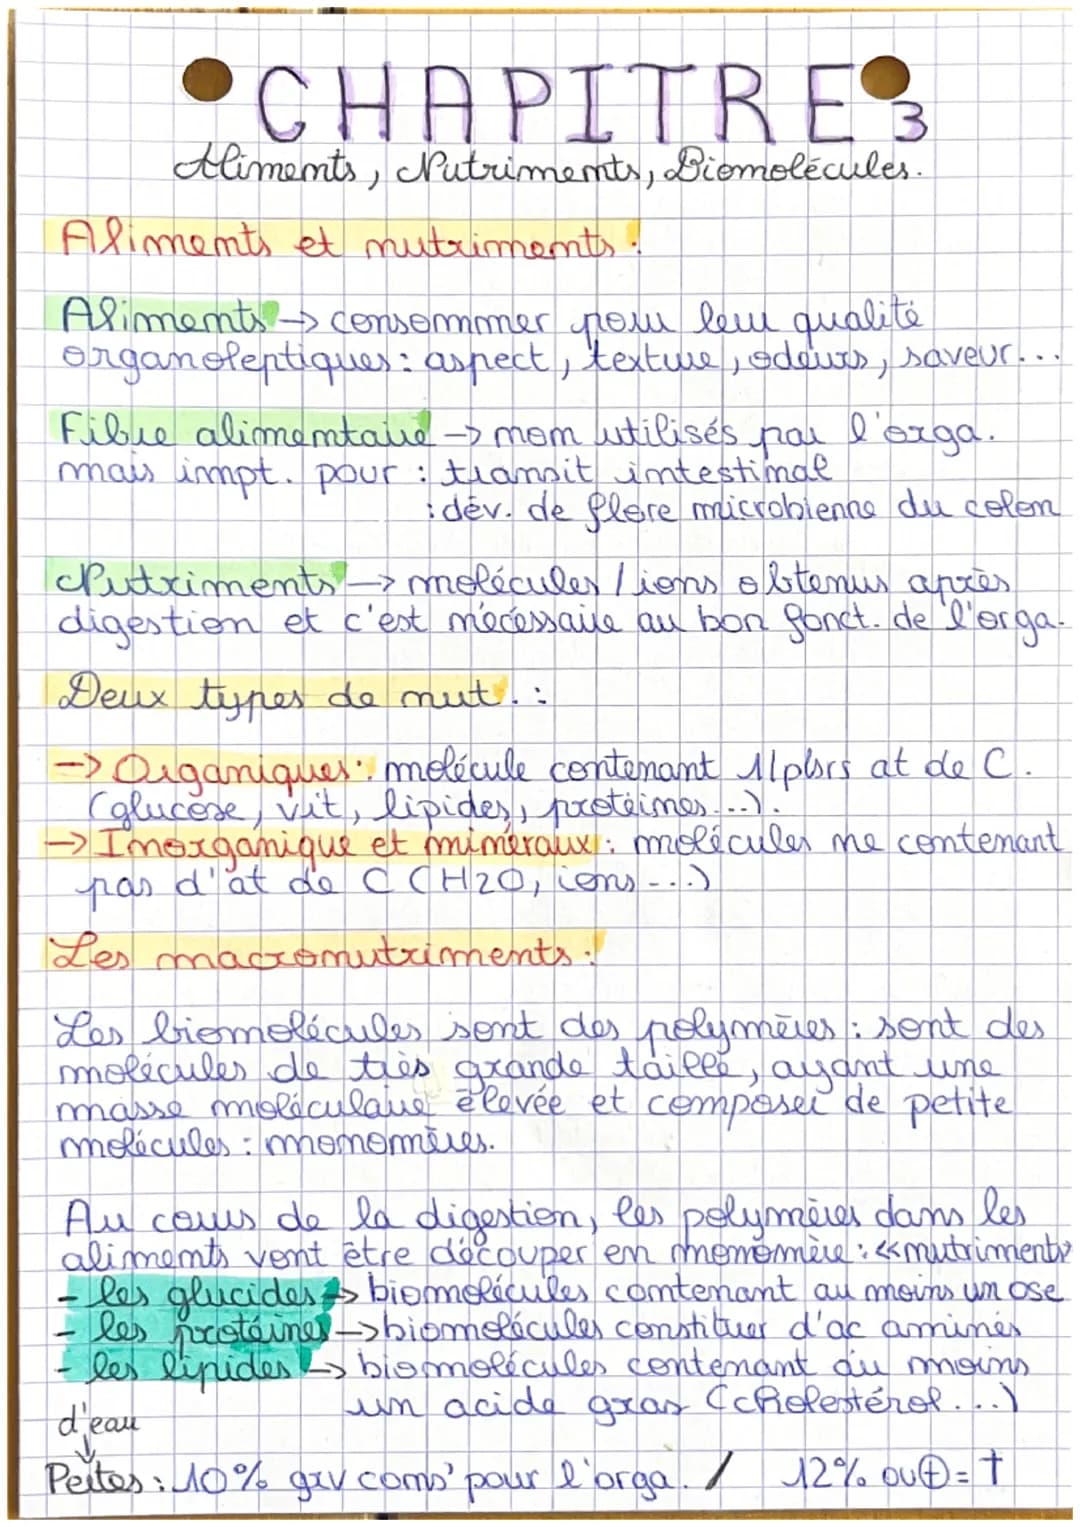 CHAPITRE 3
Aliments, Nutriments, Biomolécules.
Aliments et nutriments :
Aliments → consommer pour leur qualité
organoleptiques : aspect, texture, odeurs, saveur...
Fibre alimentaire → non utilisés par l'orga.
mais impt. pour : transit intestinal
: dév. de flore microbienne du colon
Nutriments → molécules / ions obtenus après
digestion et c'est nécessaire au bon fonct. de l'orga.
Deux types de nut. :
→ Organiques : molécule contenant 1/plsrs at de C.
(glucose, vit, lipides, protéines...).
→ Inorganique et minéraux : molécules ne contenant
pas d'at de C (H2O, ions...)
Les macronutriments :
Les biomolécules sont des polymères : sont des
molécules de très grande taille, ayant une
masse moléculaire élevée et composer de petite
molécules : monomères.
Au cours de la digestion, les polymères dans les
aliments vont être découper en monomère : «nutriments»
- les glucides → biomolécules contenant au moins un ose
- les protéines → biomolécules constituer d'ac aminés
- les lipides → biomolécules contenant au moins
un acide gras (cholestérol...)
d'eau
↓
Peites : 10% grv cons' pour l'orga. / 12% ou ⊕ = †